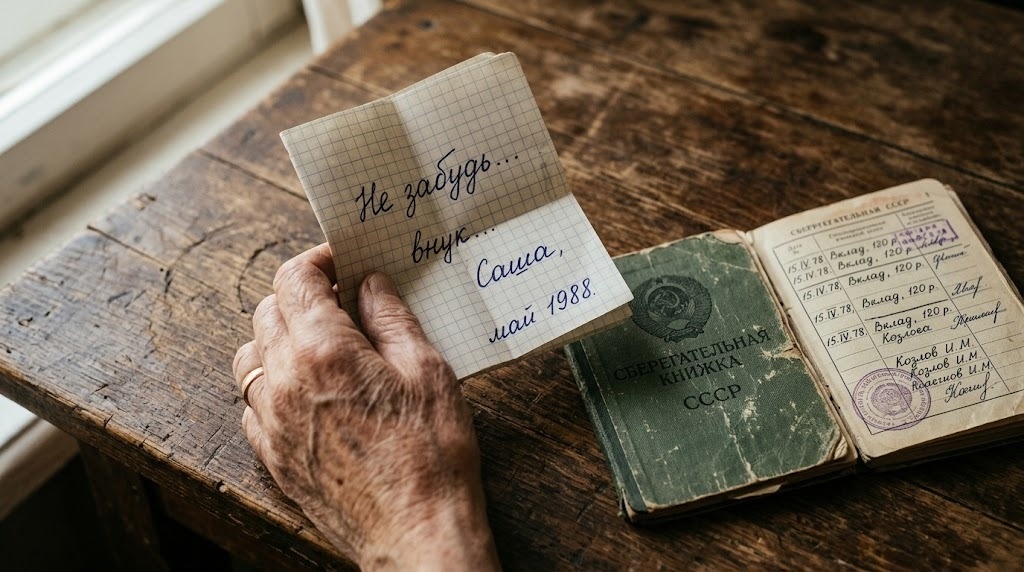 Не забудь...
внук...
Саша,
май 1988.
СБЕРЕГАТЕЛЬНАЯ
КНИЖКА
СССР
СБЕРЕГАТЕЛЬНАЯ СССР
15.IV.78 Вклад, 120 р.
15.IV.78 Вклад, 120 р.
15.IV.78 Вклад, 120 р.
15.IV.78 Вклад, 120 р.
Козлова
Козлов И.М.
Козлов И.М.
И.М.